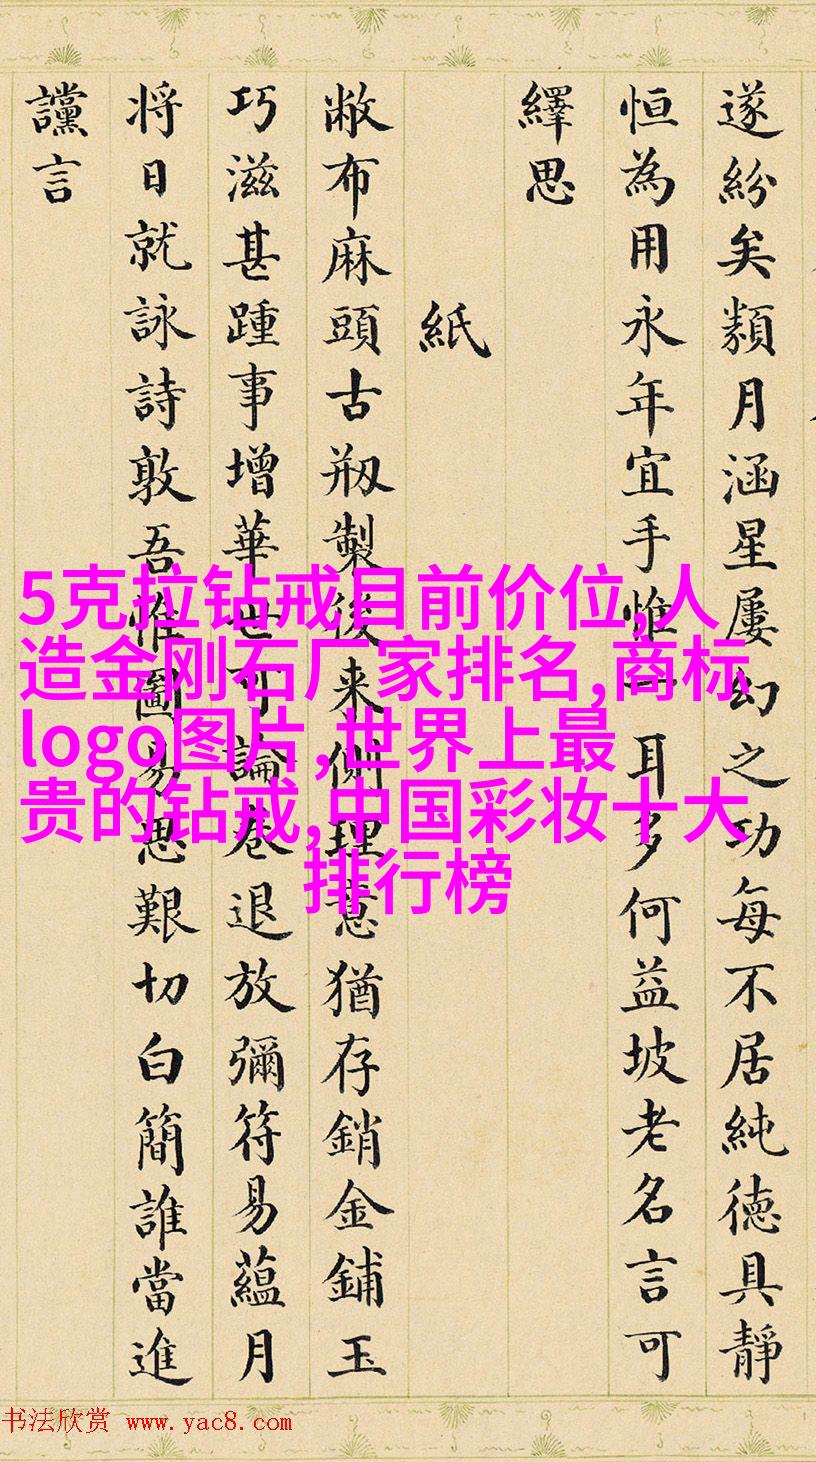 遂紛矣類月涵星屢幻之功每不居純德具靜
恒為用永年宜手惟一耳多何益坡老名言可
繹思
紙
敝布麻頭古剏製後来側理意猶存銷金鋪玉
巧滋甚踵事增華世可論卷退放彌符易蘊月
将日就詠詩敦吾惟圖易思艱切白簡誰當進
讜言
5克拉钻戒目前价位,人
造金刚石厂家排名,商标
logo图片,世界上最
贵的钻戒,中国彩妆十大
排行榜
书法欣赏 www.yac8.com